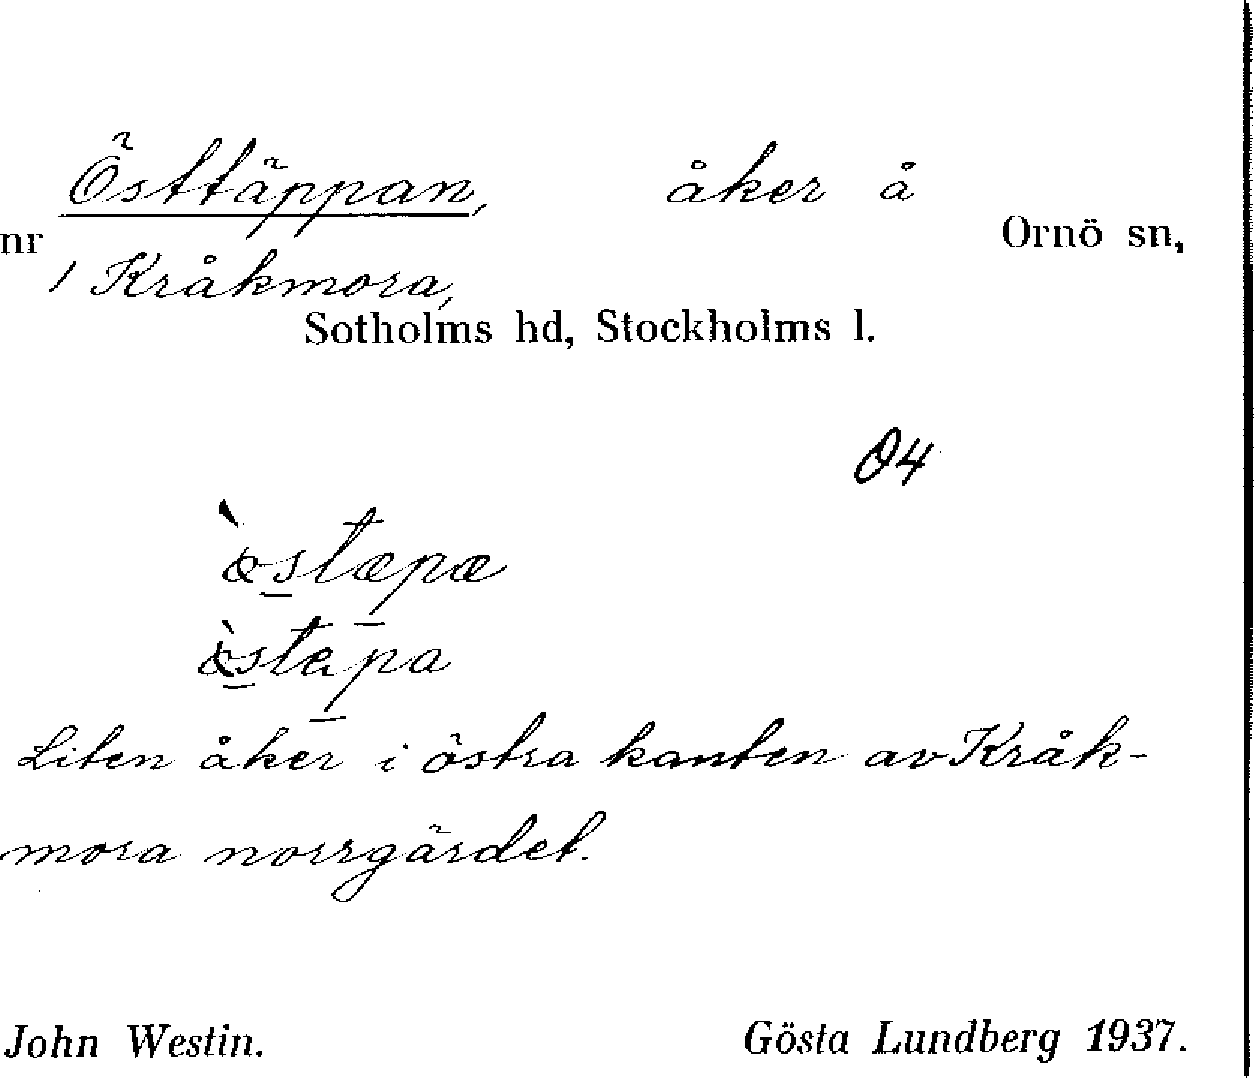 Östtäppan, åker å
nr Ornö sn,
1 Kråkmora,
Sotholms hd, Stockholms l.
04
Liten åker i östra kanten av Kråk-
mora norrgärdet.
John Westin. Gösta Lundberg 1937.